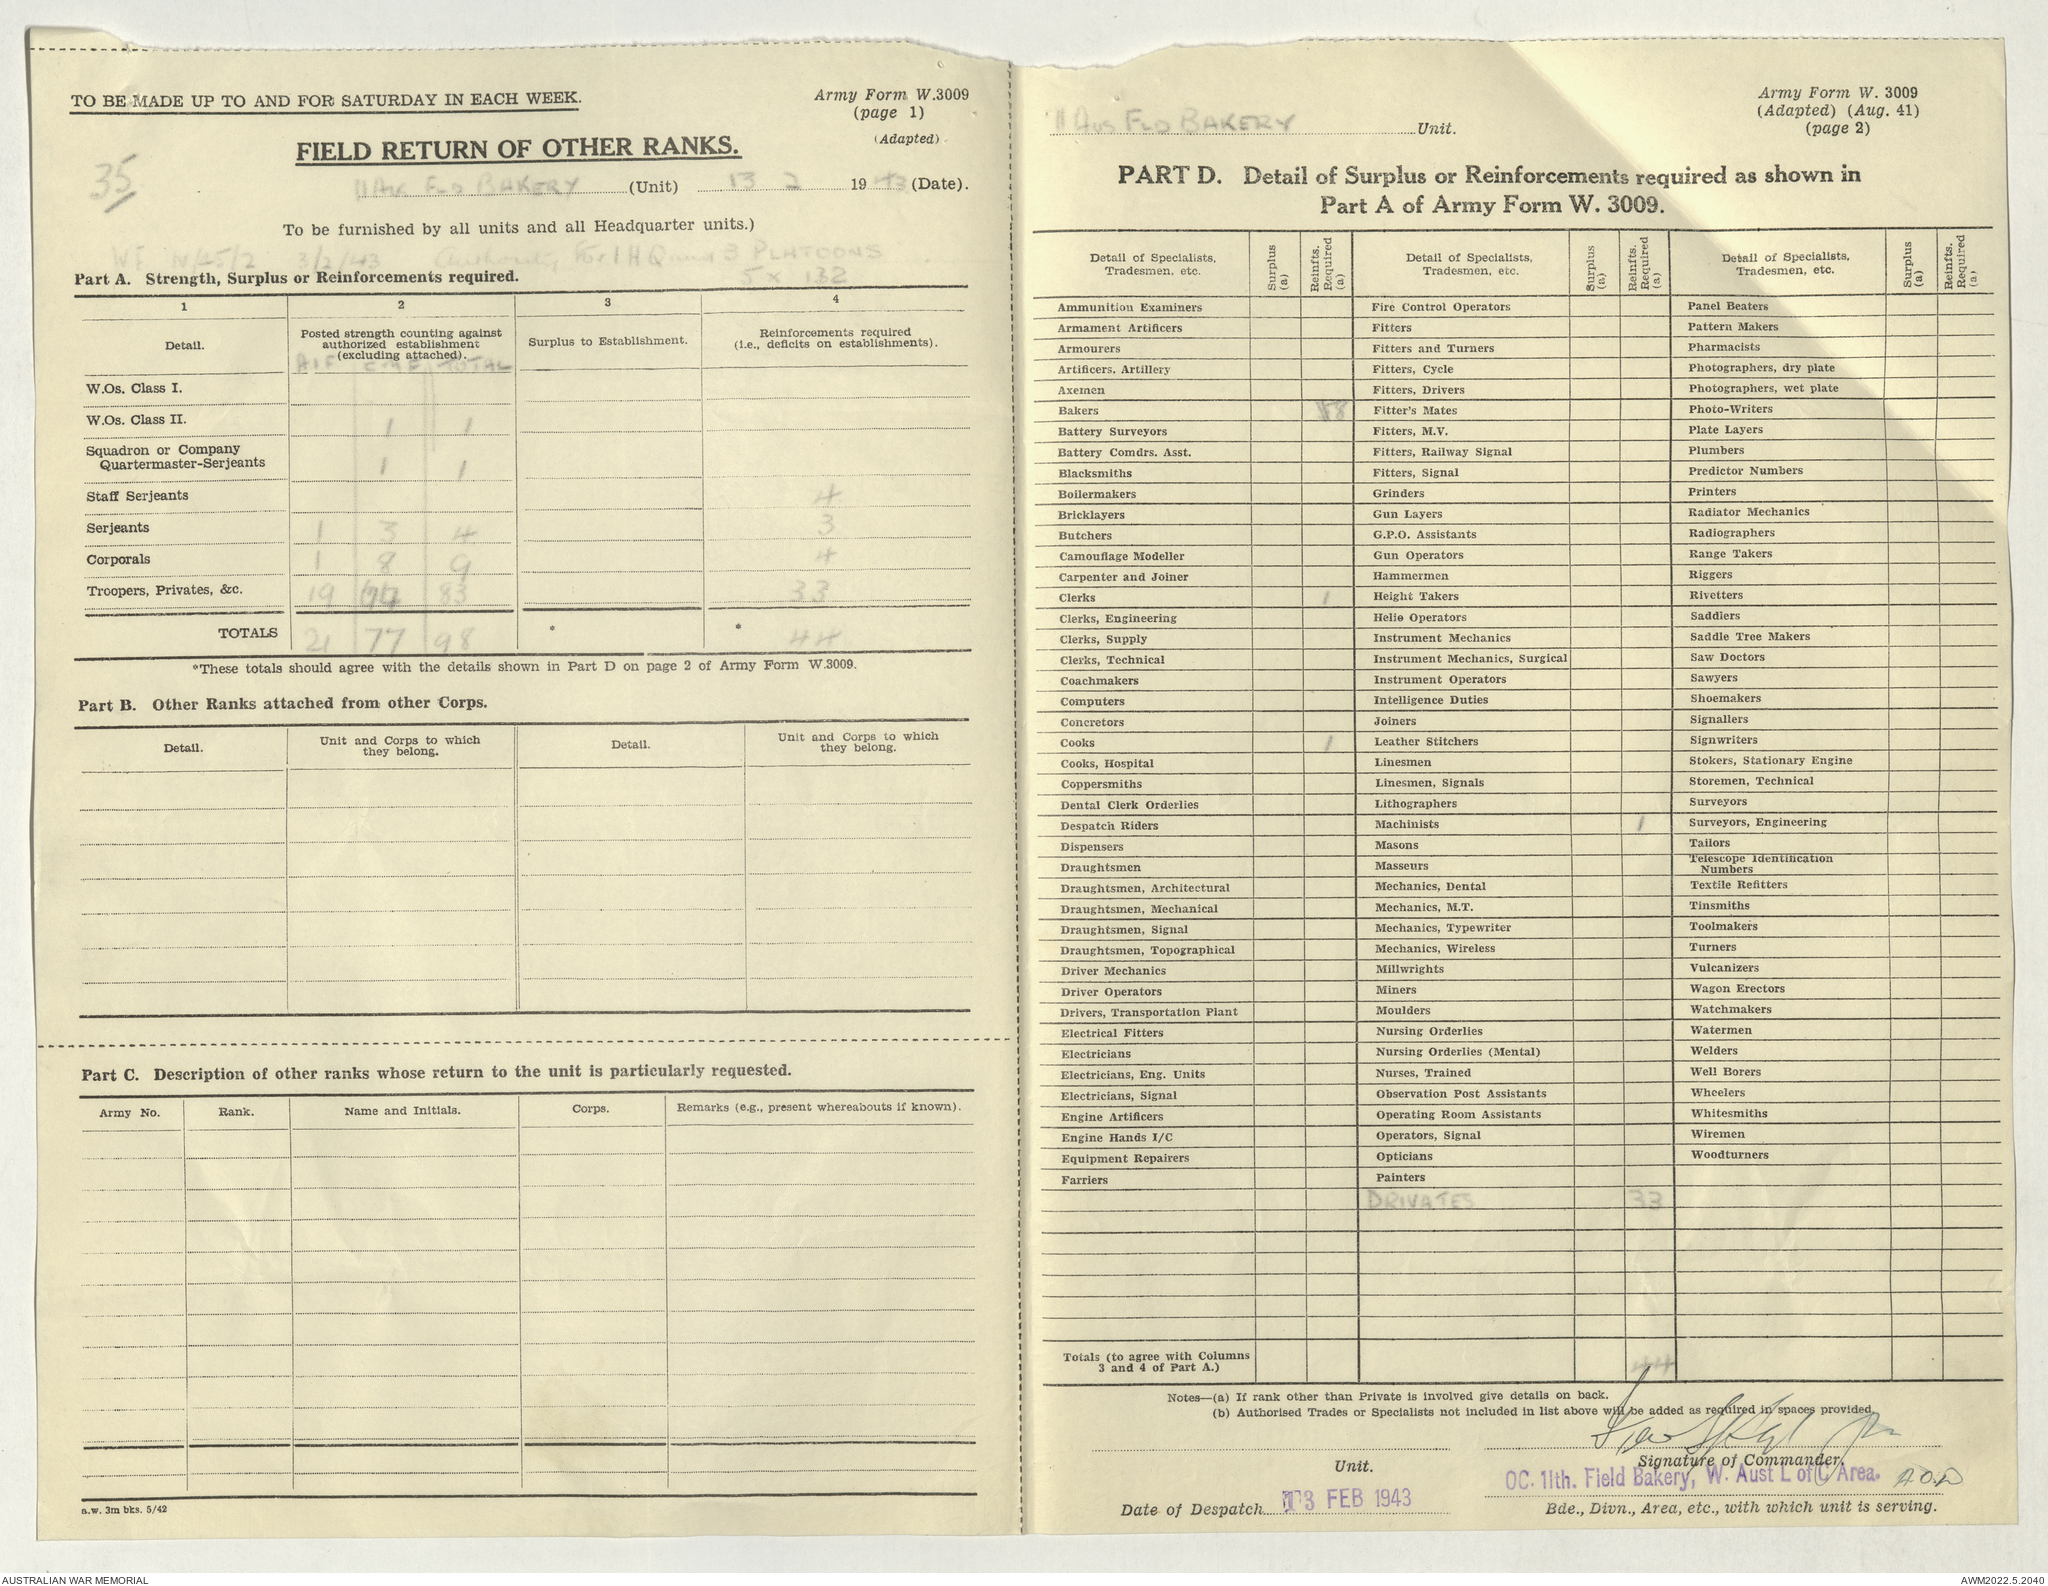 TO BE MADE UP TO AND FOR SATURDAY IN EACH WEEK.
Army Form W.3009
(page 1)
(Adapted)
FIELD RETURN OF OTHER RANKS.
35
11 Aus FLD BAKERY (Unit) 13 2 1943 (Date).
To be furnished by all units and all Headquarter units.)
WE 3/2/43 Authority For 1 HQ and 3 PLATOONS
5 x 132
Part A. Strength, Surplus or Reinforcements required.
1 2 3 4
Detail.
Posted strength counting against authorized establishment (excluding attached).
Surplus to Establishment.
Reinforcements required (i.e., deficits on establishments).
AIF CMF TOTAL
W.Os. Class I.
W.Os. Class II. 1 1
Squadron or Company Quartermaster-Serjeants 1 1
Staff Serjeants 4
Serjeants 1 3 4 3
Corporals 1 8 9 4
Troopers, Privates, &c. 19 83 33
TOTALS 21 77 98 * * 44
*These totals should agree with the details shown in Part D on page 2 of Army Form W.3009.
Part B. Other Ranks attached from other Corps.
Detail. Unit and Corps to which they belong. Detail. Unit and Corps to which they belong.
Part C. Description of other ranks whose return to the unit is particularly requested.
Army No. Rank. Name and Initials. Corps. Remarks (e.g., present whereabouts if known).
a.w. 3m bks. 5/42
Army Form W. 3009
(Adapted) (Aug. 41)
(page 2)
11 Aus FLD BAKERY Unit.
PART D. Detail of Surplus or Reinforcements required as shown in
Part A of Army Form W. 3009.
Detail of Specialists, Tradesmen, etc. Surplus (a) Reinfts. Required (a)
Detail of Specialists, Tradesmen, etc. Surplus (a) Reinfts. Required (a)
Detail of Specialists, Tradesmen, etc. Surplus (a) Reinfts. Required (a)
Ammunition Examiners Fire Control Operators Panel Beaters
Armament Artificers Fitters Pattern Makers
Armourers Fitters and Turners Pharmacists
Artificers, Artillery Fitters, Cycle Photographers, dry plate
Axemen Fitters, Drivers Photographers, wet plate
Bakers 8 Fitter's Mates Photo-Writers
Battery Surveyors Fitters, M.V. Plate Layers
Battery Comdrs. Asst. Fitters, Railway Signal Plumbers
Blacksmiths Fitters, Signal Predictor Numbers
Boilermakers Grinders Printers
Bricklayers Gun Layers Radiator Mechanics
Butchers G.P.O. Assistants Radiographers
Camouflage Modeller Gun Operators Range Takers
Carpenter and Joiner Hammermen Riggers
Clerks 1 Height Takers Rivetters
Clerks, Engineering Helio Operators Saddlers
Clerks, Supply Instrument Mechanics Saddle Tree Makers
Clerks, Technical Instrument Mechanics, Surgical Saw Doctors
Coachmakers Instrument Operators Sawyers
Computers Intelligence Duties Shoemakers
Concretors Joiners Signallers
Cooks 1 Leather Stitchers Signwriters
Cooks, Hospital Linesmen Stokers, Stationary Engine
Coppersmiths Linesmen, Signals Storemen, Technical
Dental Clerk Orderlies Lithographers Surveyors
Despatch Riders Machinists 1 Surveyors, Engineering
Dispensers Masons Tailors
Draughtsmen Masseurs Telescope Identification Numbers
Draughtsmen, Architectural Mechanics, Dental Textile Refitters
Draughtsmen, Mechanical Mechanics, M.T. Tinsmiths
Draughtsmen, Signal Mechanics, Typewriter Toolmakers
Draughtsmen, Topographical Mechanics, Wireless Turners
Driver Mechanics Millwrights Vulcanizers
Driver Operators Miners Wagon Erectors
Drivers, Transportation Plant Moulders Watchmakers
Electrical Fitters Nursing Orderlies Watermen
Electricians Nursing Orderlies (Mental) Welders
Electricians, Eng. Units Nurses, Trained Well Borers
Electricians, Signal Observation Post Assistants Wheelers
Engine Artificers Operating Room Assistants Whitesmiths
Engine Hands I/C Operators, Signal Wiremen
Equipment Repairers Opticians Woodturners
Farriers Painters
PRIVATES 33
Totals (to agree with Columns 3 and 4 of Part A.) 44
Notes—(a) If rank other than Private is involved give details on back.
(b) Authorised Trades or Specialists not included in list above will be added as required in spaces provided.
Unit.
Signature of Commander.
OC. 11th. Field Bakery, W. Aust L of C Area.
Date of Despatch 13 FEB 1943
Bde., Divn., Area, etc., with which unit is serving.
AUSTRALIAN WAR MEMORIAL
AWM2022.5.2040